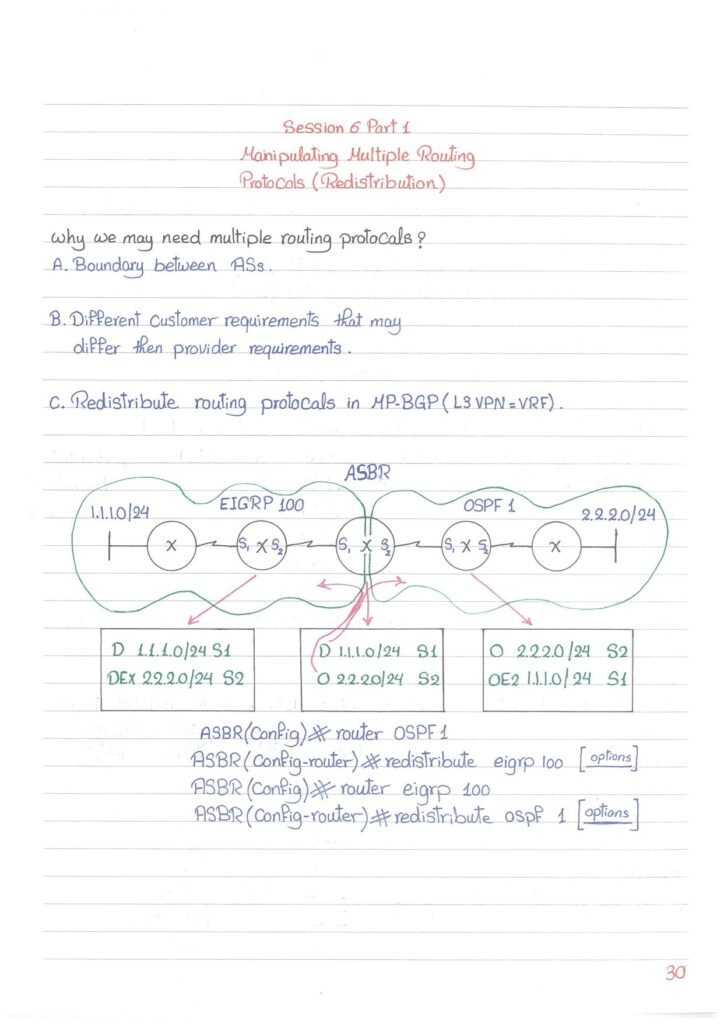 Session 6 Part 1
Manipulating Multiple Routing
Protocals (Redistribution)
why we may need multiple routing protocals?
A. Boundary between ASs.
B. Different Customer requirements that may
differ then provider requirements.
C. Redistribute routing protocals in MP-BGP (L3 VPN = VRF).
ASBR
EIGRP 100
OSPF 1
1.1.1.0/24
2.2.2.0/24
X
S1 X S2
S1 X S2
S1 X S2
X
D 1.1.1.0/24 S1
DEX 2.2.2.0/24 S2
D 1.1.1.0/24 S1
O 2.2.2.0/24 S2
O 2.2.2.0/24 S2
OE2 1.1.1.0/24 S1
ASBR(Config)# router OSPF 1
ASBR(Config-router)# redistribute eigrp 100 [options]
ASBR(Config)# router eigrp 100
ASBR(Config-router)# redistribute ospf 1 [options]
30